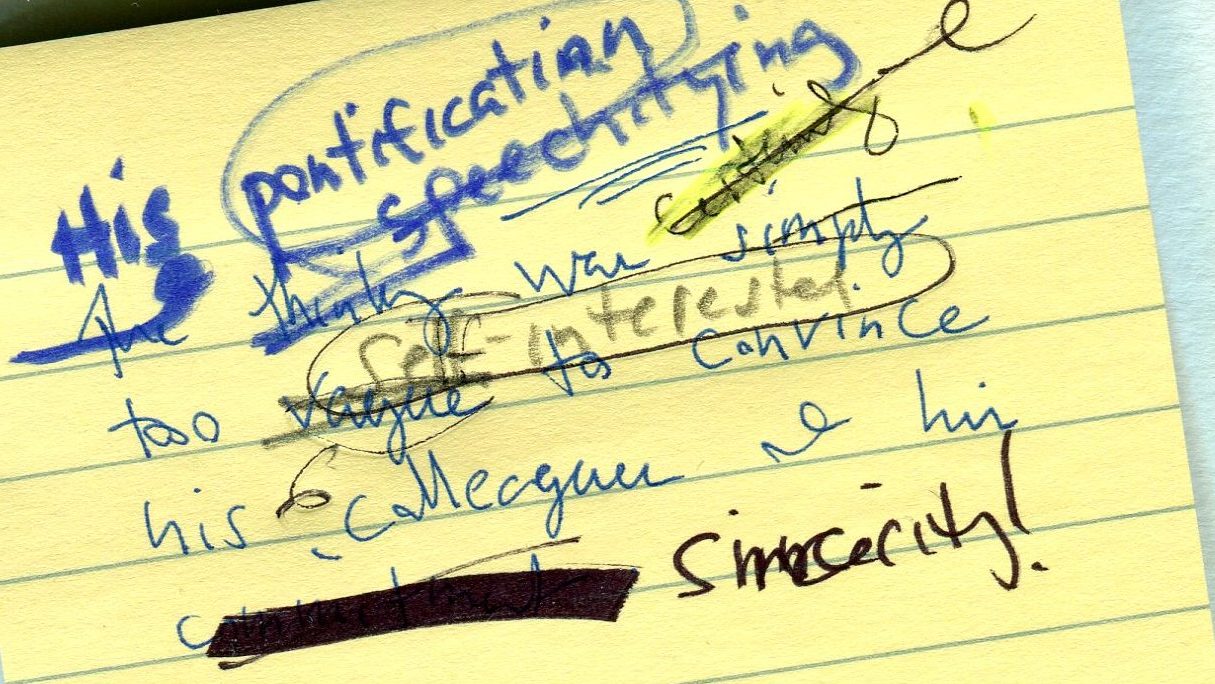 His pontification
speechifying
The thinking was simply
self-interested.
too vague to convince
his colleagues of his
commitment sincerity!